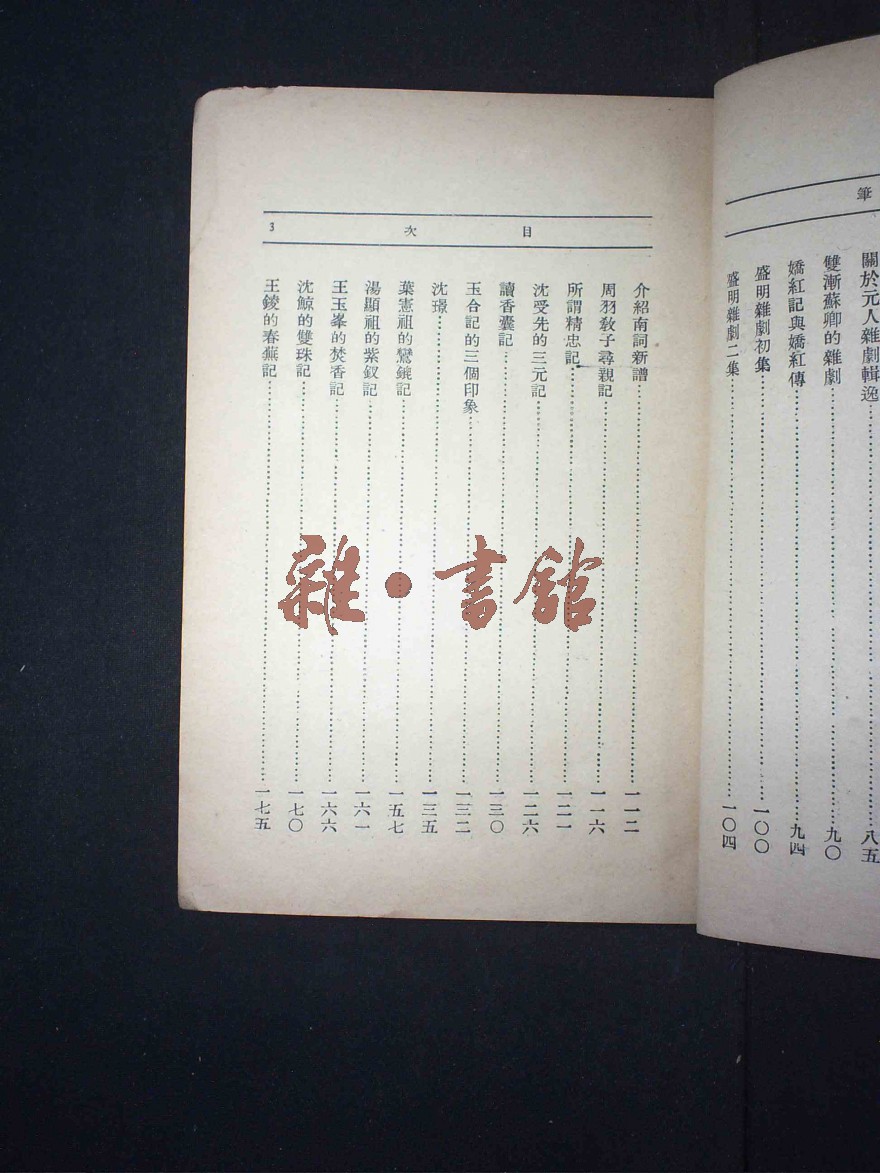 筆
關於元人雜劇輯逸……八五
雙漸蘇卿的雜劇……九〇
嬌紅記與嬌紅傳……九四
盛明雜劇初集……一〇〇
盛明雜劇二集……一〇四
目次
3
介紹南詞新譜……一一二
周羽敎子尋親記……一一六
所謂精忠記……一二一
沈受先的三元記……一二六
讀香囊記……一三〇
玉合記的三個印象……一三二
沈璟……一三五
葉憲祖的鸞鎞記……一五七
湯顯祖的紫釵記……一六一
王玉峯的焚香記……一六六
沈鯨的雙珠記……一七〇
王錂的春蕪記……一七五
雜·書館